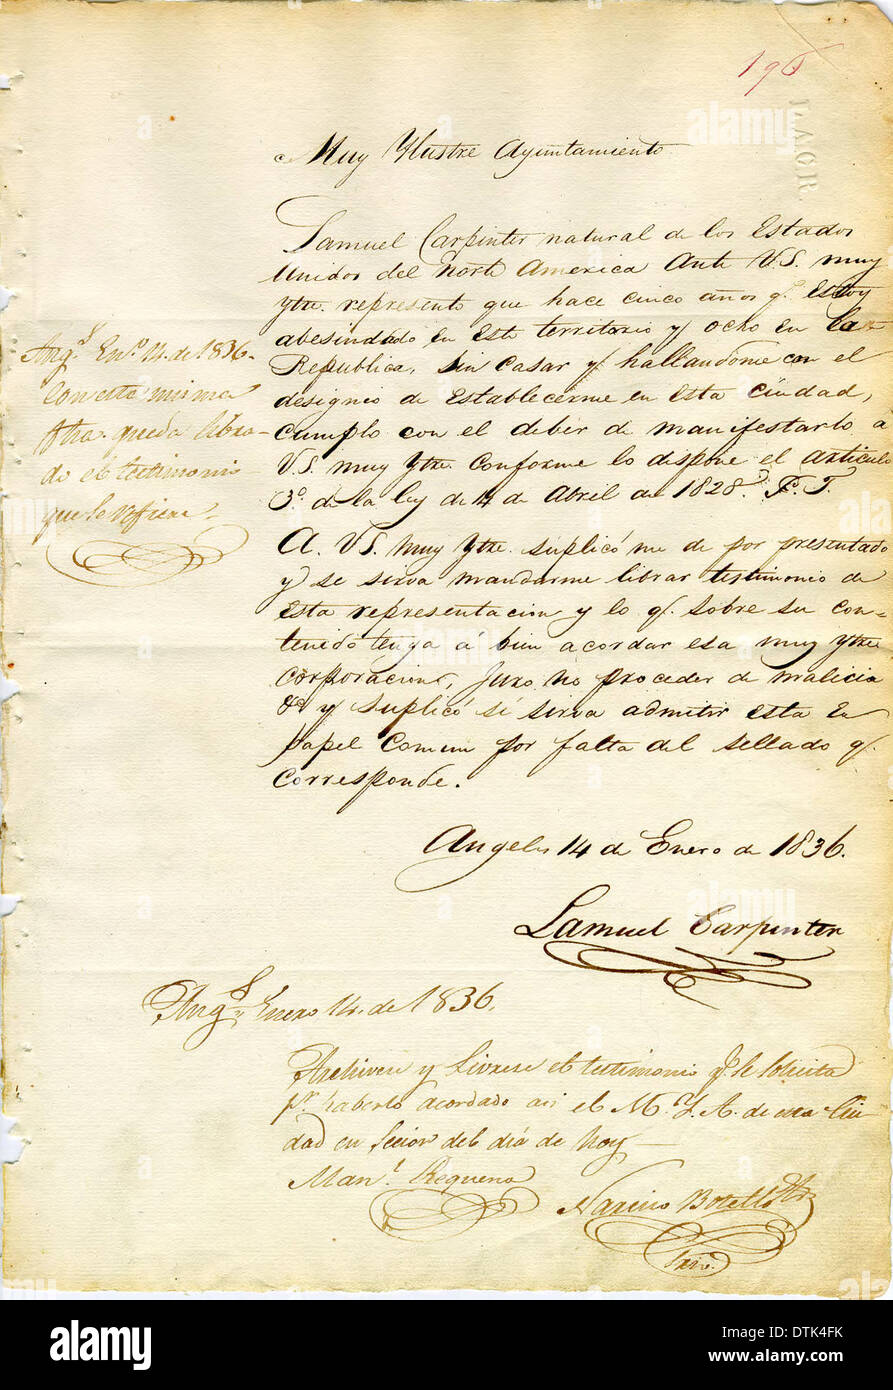 196
L.A.C.R.
Muy Ylustre Ayuntamiento
Samuel Carpinter natural de los Estados
Unidos del Norte America Ante V.S. muy
Ytre. represento que hace cinco años q. Estoy
abesindado en este territorio y ocho en la
Republica, sin casar y hallandome con el
designio de Establecerme en esta Ciudad,
cumplo con el deber de manifestarlo a
V.S. muy Ytre. conforme lo dispone el articulo
3º. de la ley de 14 de Abril de 1828.
A. V.S. muy Ytre. suplicó me de por presentado
y se sirva mandarme librar testimonio de
esta representacion y lo q. sobre su con=
tenido tenga á bien acordar esa muy Ytre
corporacion, juro no proceder de malicia
&a y suplicó sé sirva admitir esta en
papel comun por falta del sellado q.
corresponde.
Angeles 14 de Enero de 1836.
Samuel Carpinter
Angs. Eno. 14. de 1836.
Con esta misma
fha. queda libra-
do el testimonio
que se refiere.
Angs. Enero 14. de 1836.
Archivese y Librese el testimonio q. se solicita
pr. haberlo acordado asi el M. Y. A. de esta Ciu
dad en Secion del dia de hoy
Manl. Requena
Narciso Botello
Srio.
alamy
a
alamy
Image ID: DTK4FK
www.alamy.com